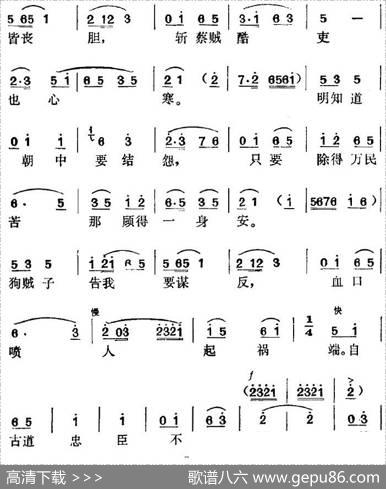 5 6 5 1 | 2 12 3 | 0 i 6 5 | 3· i 6 3 | 5 —
皆丧 胆， 斩蔡贼 酷 吏
2·3 5 i | 6 5 3 5 | 2 1 (2 | 7·2 6561) | 5 3 5
也 心 寒。 明知道
0 i i | 6 3· | 2·3 7 6 | 0 i 6 5 | i 2 3
朝中 要结 怨， 只要 除得万民
6· 5 | 3 5 i 2 | 6·5 3 5 | 2 1 (i | 5676 i 6)
苦 那 顾得 一身 安。
5 3 5 | i 2i 6 i | 5 6 5 1 | 2 12 3 | 0 i 6 i
狗贼子 告我 要谋 反， 血口
6· 3 | 慢 2 03 2321 | i 5 6 i | 1/4 快 5 i
喷 人 起 祸 端。自
(2321 | 2321 | 2)
6 5 | i i | 0 i | 0 i | 6 3 | 2 | 2 | 0 3
古道 忠臣 不
高清下载 >>>
歌谱八六 www.gepu86.com